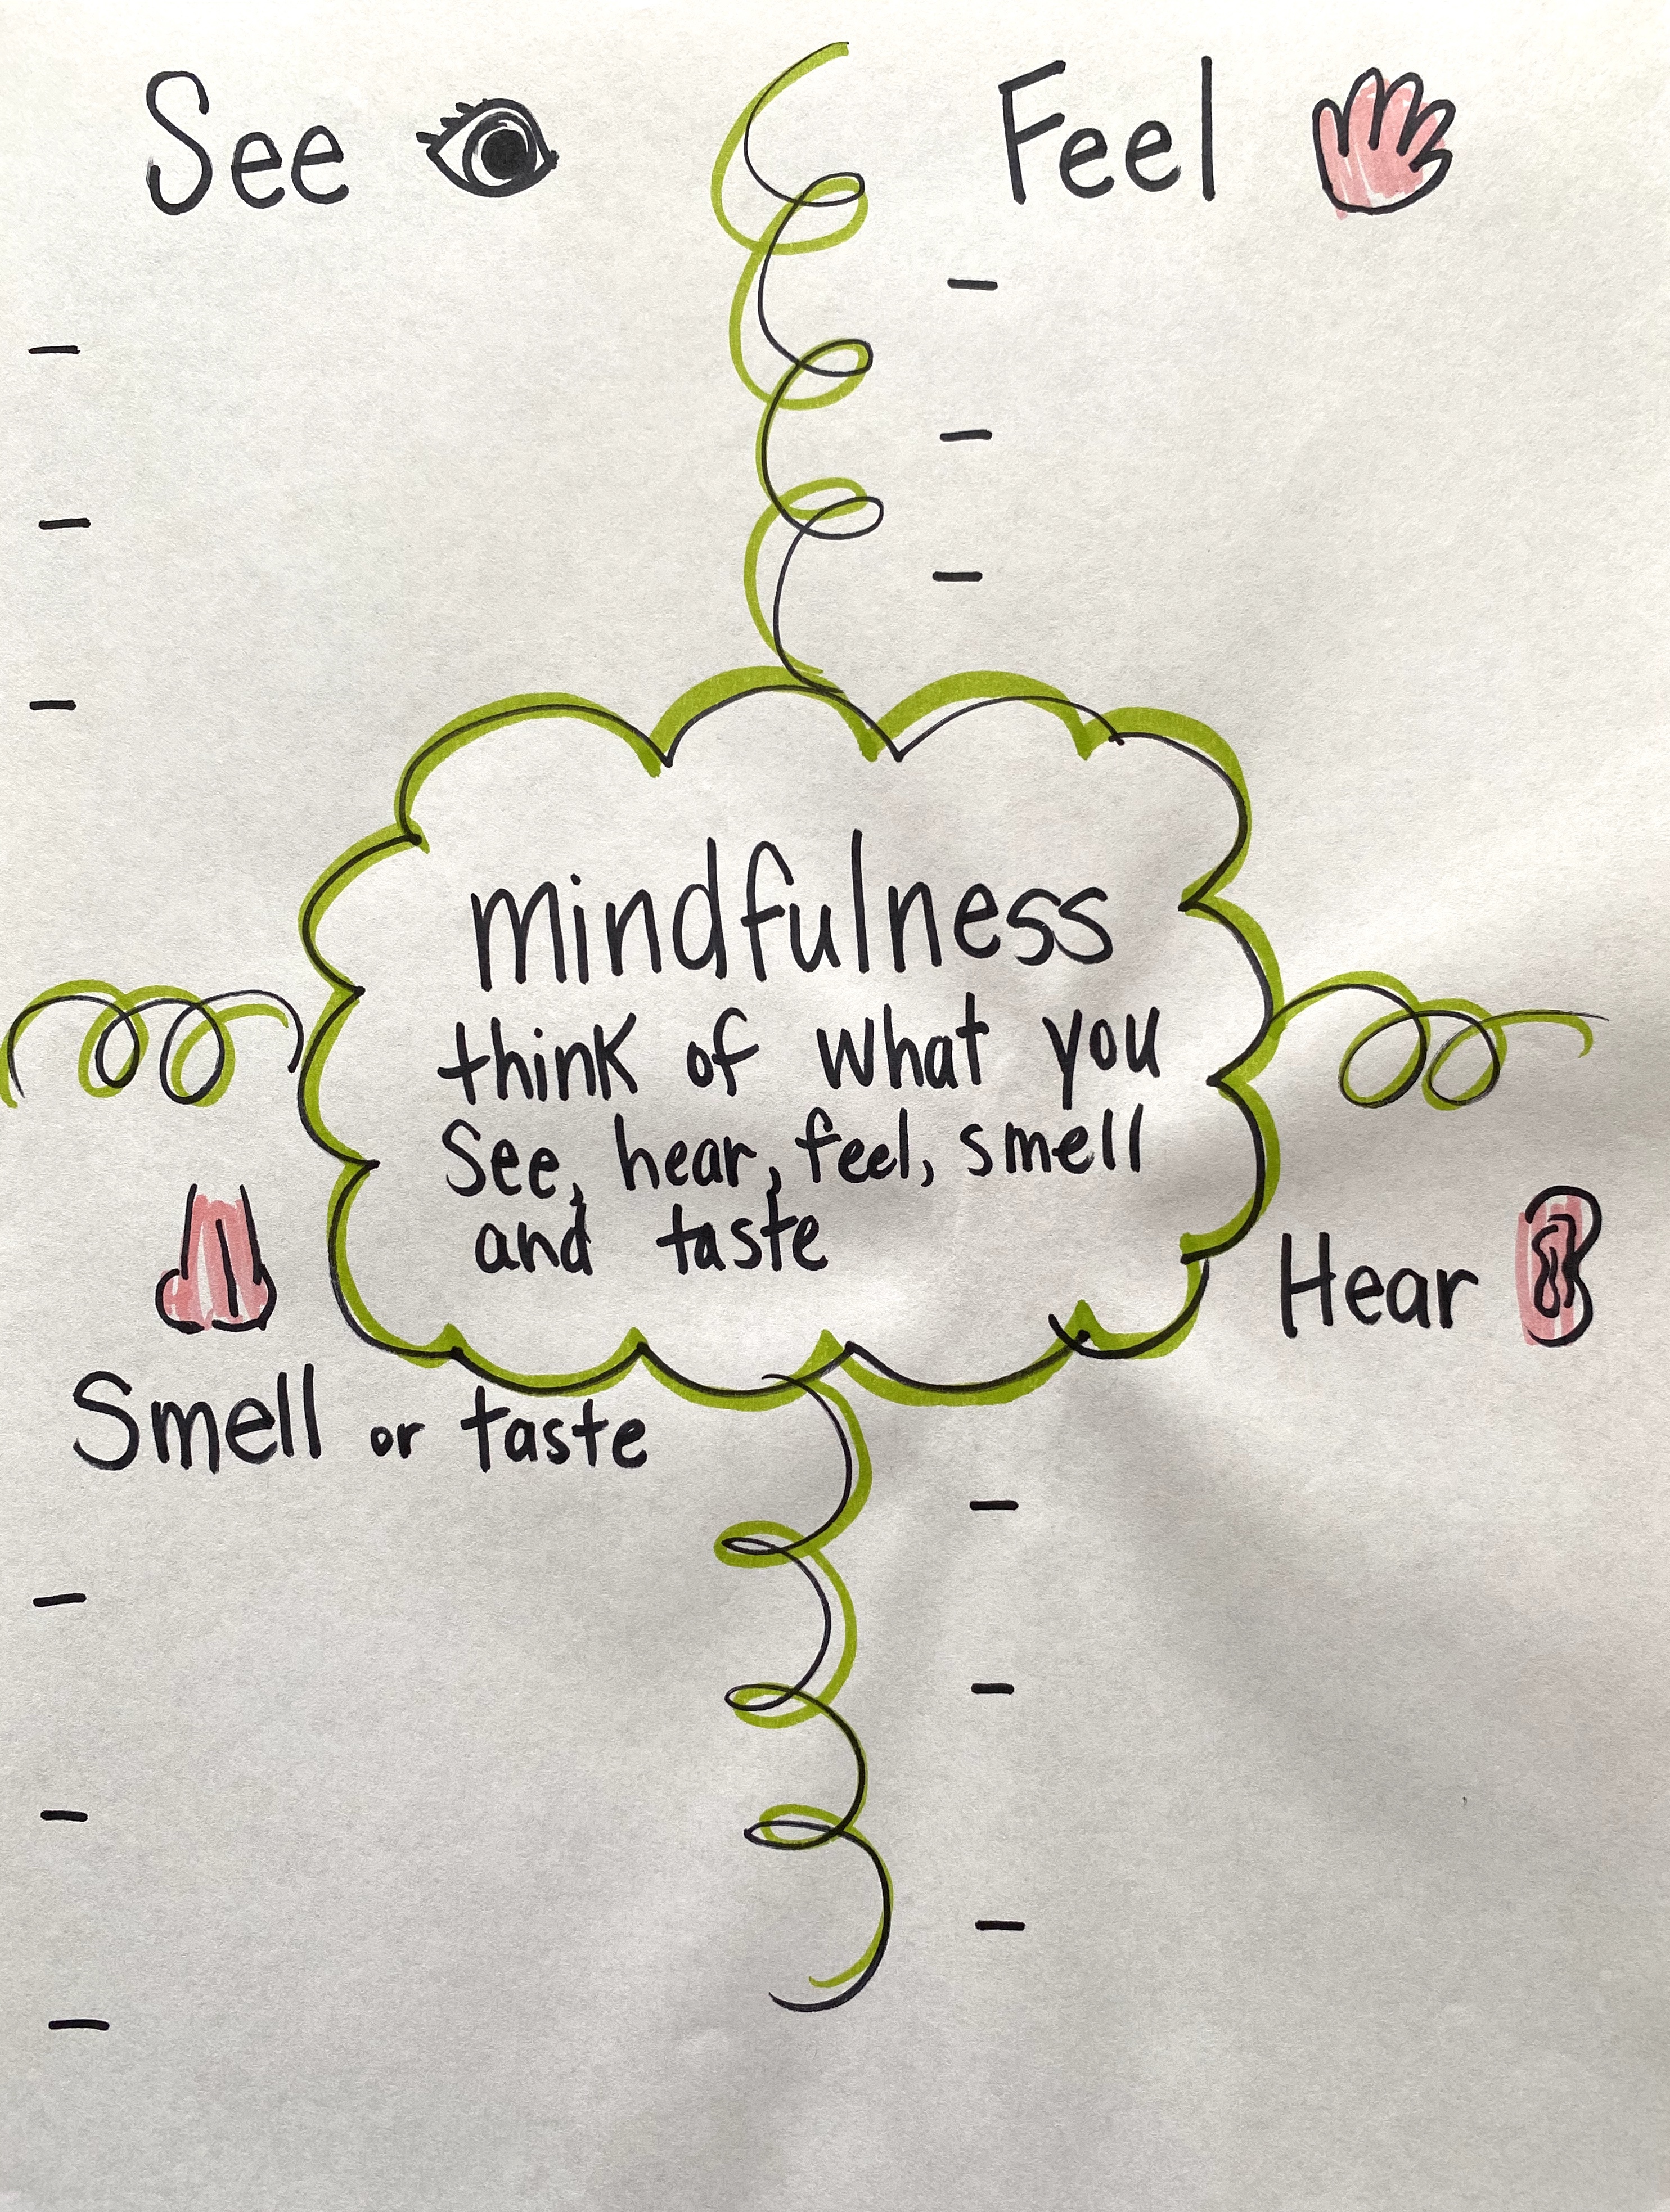 See
Feel
-
-
-
-
-
-
mindfulness
think of what you
See, hear, feel, smell
and taste
Hear
Smell or taste
-
-
-
-
-
-